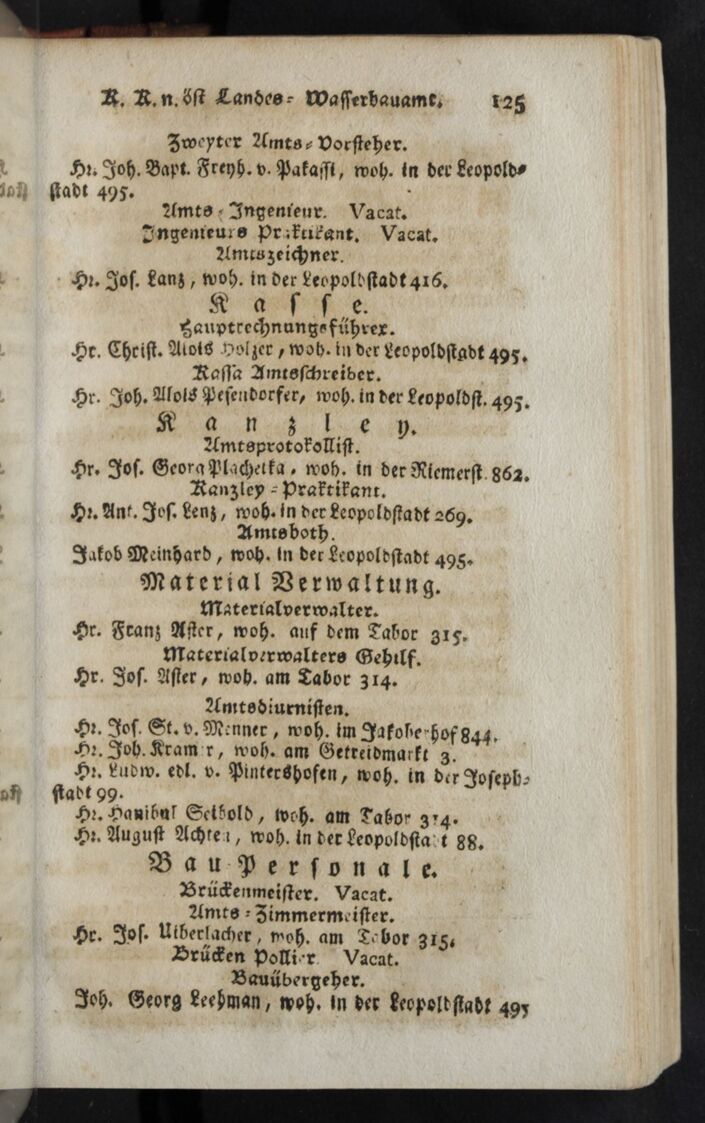 K. K. n. öst Landes- Wasserbauamt. 125
Zweyter Amts-Vorsteher.
Hr. Joh. Bapt. Freyh. v. Pakassi, woh. in der Leopold-
stadt 495.
Amts-Ingenieur. Vacat.
Ingenieurs Praktikant. Vacat.
Amtszeichner.
Hr. Jos. Lanz, woh. in der Leopoldstadt 416.
Kasse.
Hauptrechnungsführer.
Hr. Christ. Alois Holzer, woh. in der Leopoldstadt 495.
Kassa Amtsschreiber.
Hr. Joh. Alois Pesendorfer, woh. in der Leopoldst. 495.
Kanzley.
Amtsprotokollist.
Hr. Jos. Georg Plachetka, woh. in der Riemerst. 862.
Kanzley-Praktikant.
Hr. Ant. Jos. Lenz, woh. in der Leopoldstadt 269.
Amtsboth.
Jakob Meinhard, woh. in der Leopoldstadt 495.
Material Verwaltung.
Materialverwalter.
Hr. Franz Aster, woh. auf dem Tabor 315.
Materialverwalters Gehilf.
Hr. Jos. Aster, woh. am Tabor 314.
Amtsdiurnisten.
Hr. Jos. St. v. Menner, woh. im Jakoberhof 844.
Hr. Joh. Kramer, woh. am Getreidmarkt 3.
Hr. Ludw. edl. v. Pintershofen, woh. in der Joseph-
stadt 99.
Hr. Hanibal Seibold, woh. am Tabor 314.
Hr. August Achten, woh. in der Leopoldstadt 88.
Bau Personale.
Brückenmeister. Vacat.
Amts-Zimmermeister.
Hr. Jos. Uiberlacher, woh. am Tabor 315.
Brücken Pollier. Vacat.
Bauübergeher.
Joh. Georg Leehman, woh. in der Leopoldstadt 495